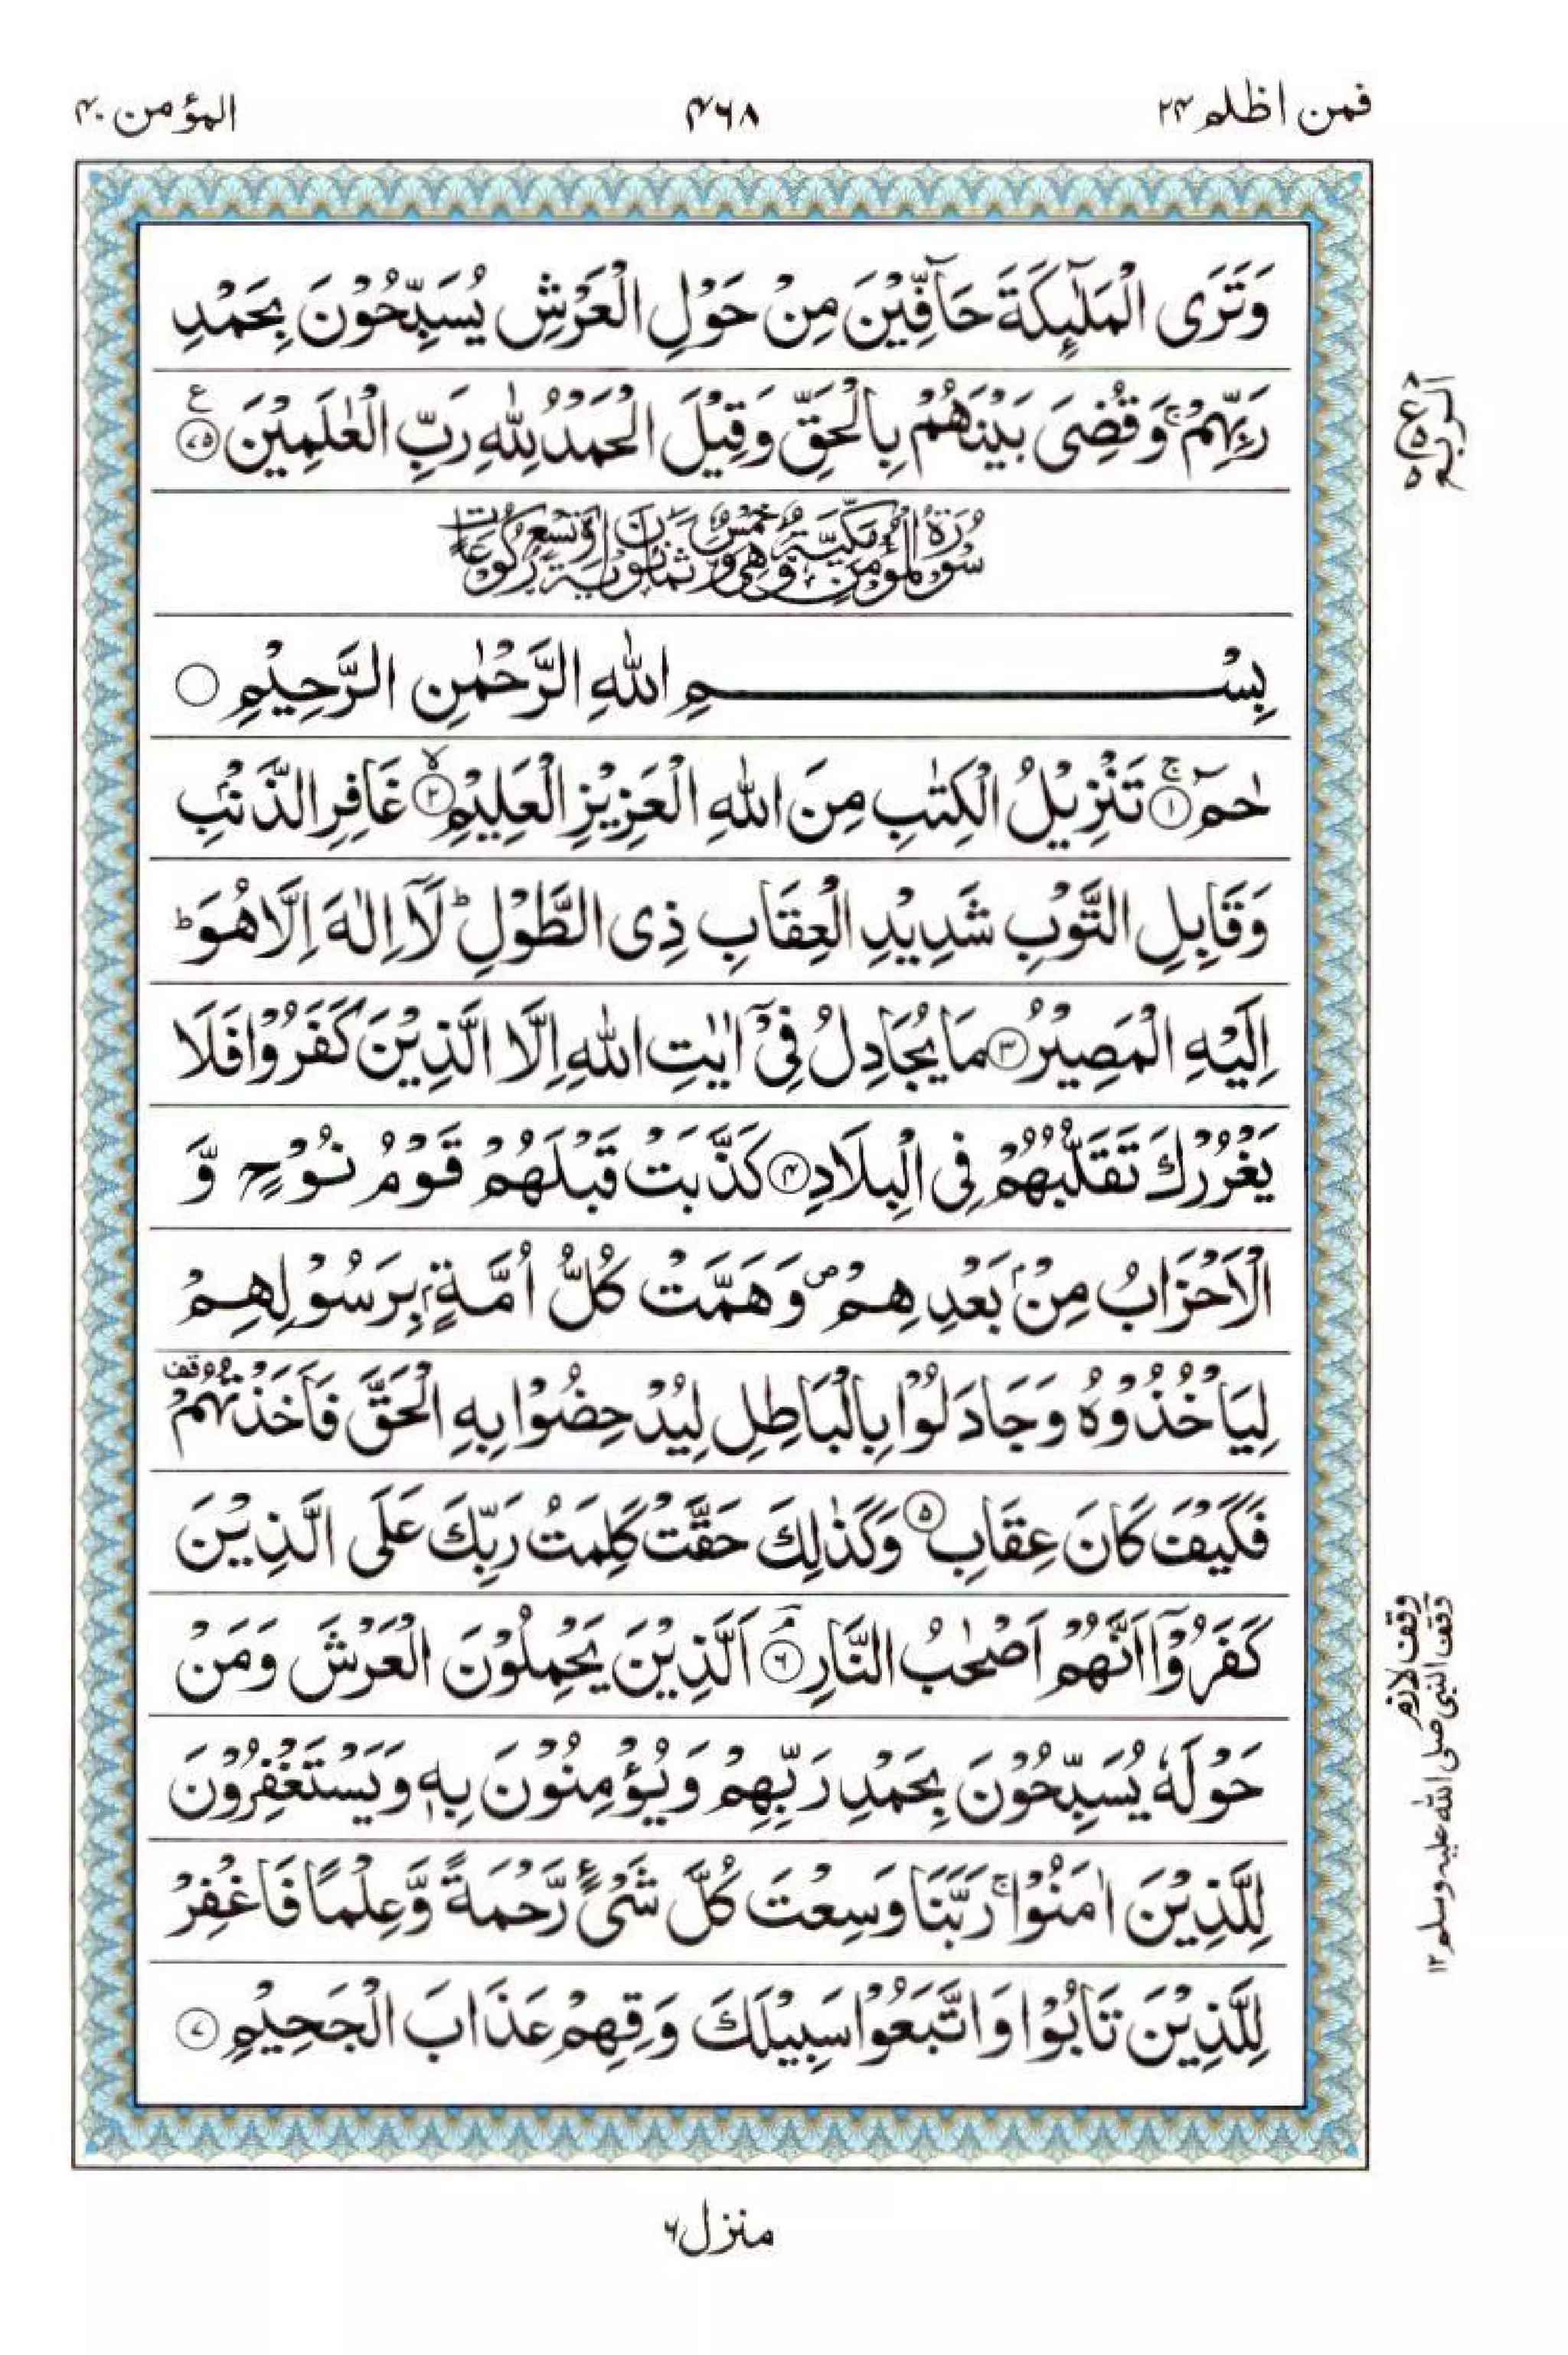 فمن اظلم ۲۴
۴۶۸
المؤمن ۴۰
وَتَرَى الْمَلٰٓئِكَةَ حَآفِّيْنَ مِنْ حَوْلِ الْعَرْشِ يُسَبِّحُوْنَ بِحَمْدِ
رَبِّهِمْ ۚ وَقُضِىَ بَيْنَهُمْ بِالْحَقِّ وَقِيْلَ الْحَمْدُ لِلّٰهِ رَبِّ الْعٰلَمِيْنَ ﴿۷۵﴾ ع
الربع ع ۵ ۵
سُوْرَةُ الْمُؤْمِنِ مَكِّيَّةٌ وَّهِيَ خَمْسٌ وَّثَمَانُوْنَ اٰيَةً وَّتِسْعُ رُكُوْعَاتٍ
بِسْمِ اللّٰهِ الرَّحْمٰنِ الرَّحِيْمِ ○
حٰمٓ ﴿۱﴾ ۚ تَنْزِيْلُ الْكِتٰبِ مِنَ اللّٰهِ الْعَزِيْزِ الْعَلِيْمِ ﴿۲﴾ ۙ غَافِرِ الذَّنْۢبِ
وَقَابِلِ التَّوْبِ شَدِيْدِ الْعِقَابِ ذِى الطَّوْلِ ؕ لَاۤ اِلٰهَ اِلَّا هُوَ ؕ
اِلَيْهِ الْمَصِيْرُ ﴿۳﴾ مَا يُجَادِلُ فِىْۤ اٰيٰتِ اللّٰهِ اِلَّا الَّذِيْنَ كَفَرُوْا فَلَا
يَغْرُرْكَ تَقَلُّبُهُمْ فِى الْبِلَادِ ﴿۴﴾ كَذَّبَتْ قَبْلَهُمْ قَوْمُ نُوْحٍ وَّ
الْاَحْزَابُ مِنْۢ بَعْدِهِمْ ۖ وَهَمَّتْ كُلُّ اُمَّةٍۭ بِرَسُوْلِهِمْ
لِيَاْخُذُوْهُ وَجَادَلُوْا بِالْبَاطِلِ لِيُدْحِضُوْا بِهِ الْحَقَّ فَاَخَذْتُهُمْ وقف
فَكَيْفَ كَانَ عِقَابِ ﴿۵﴾ وَكَذٰلِكَ حَقَّتْ كَلِمَتُ رَبِّكَ عَلَى الَّذِيْنَ
كَفَرُوْۤا اَنَّهُمْ اَصْحٰبُ النَّارِ ﴿۶﴾ ۘ اَلَّذِيْنَ يَحْمِلُوْنَ الْعَرْشَ وَمَنْ
حَوْلَهٗ يُسَبِّحُوْنَ بِحَمْدِ رَبِّهِمْ وَيُؤْمِنُوْنَ بِهٖ وَيَسْتَغْفِرُوْنَ
وقف لازم
وقف النبی صلی اللہ علیہ وسلم ۱۲
لِلَّذِيْنَ اٰمَنُوْا ۚ رَبَّنَا وَسِعْتَ كُلَّ شَىْءٍ رَّحْمَةً وَّعِلْمًا فَاغْفِرْ
لِلَّذِيْنَ تَابُوْا وَاتَّبَعُوْا سَبِيْلَكَ وَقِهِمْ عَذَابَ الْجَحِيْمِ ﴿۷﴾
منزل ۶